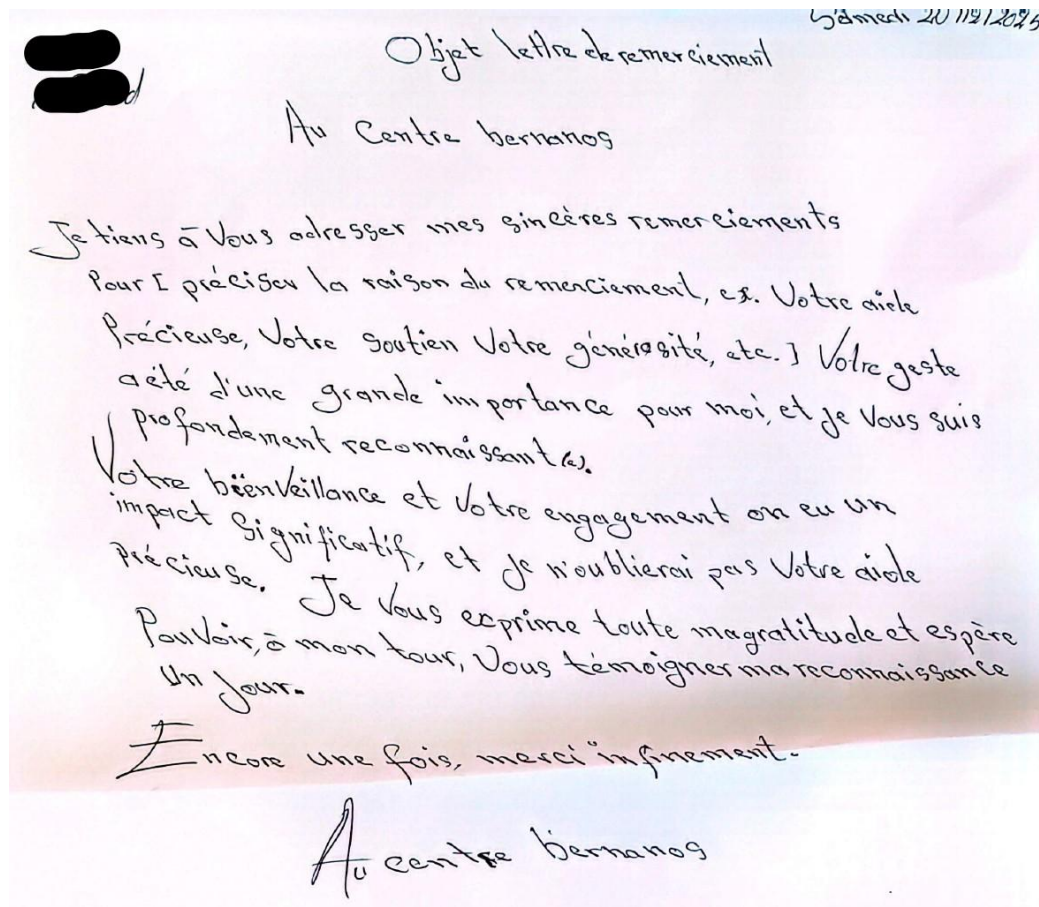 Samedi 20/12/2025
Objet lettre de remerciement
Au Centre bernanos
Je tiens à Vous adresser mes sincères remerciements
Pour [ préciser la raison du remerciement, ex. Votre aide
Précieuse, Votre soutien Votre générosité, etc. ] Votre geste
a été d'une grande importance pour moi, et je Vous suis
profondement reconnaissant (e).
Votre bienveillance et Votre engagement on eu un
impact significatif, et je n'oublierai pas Votre aide
précieuse. Je Vous exprime toute ma gratitude et espère
Pouvoir, à mon tour, Vous témoigner ma reconnaissance
un jour.
Encore une fois, merci infinement.
Au centre bernanos